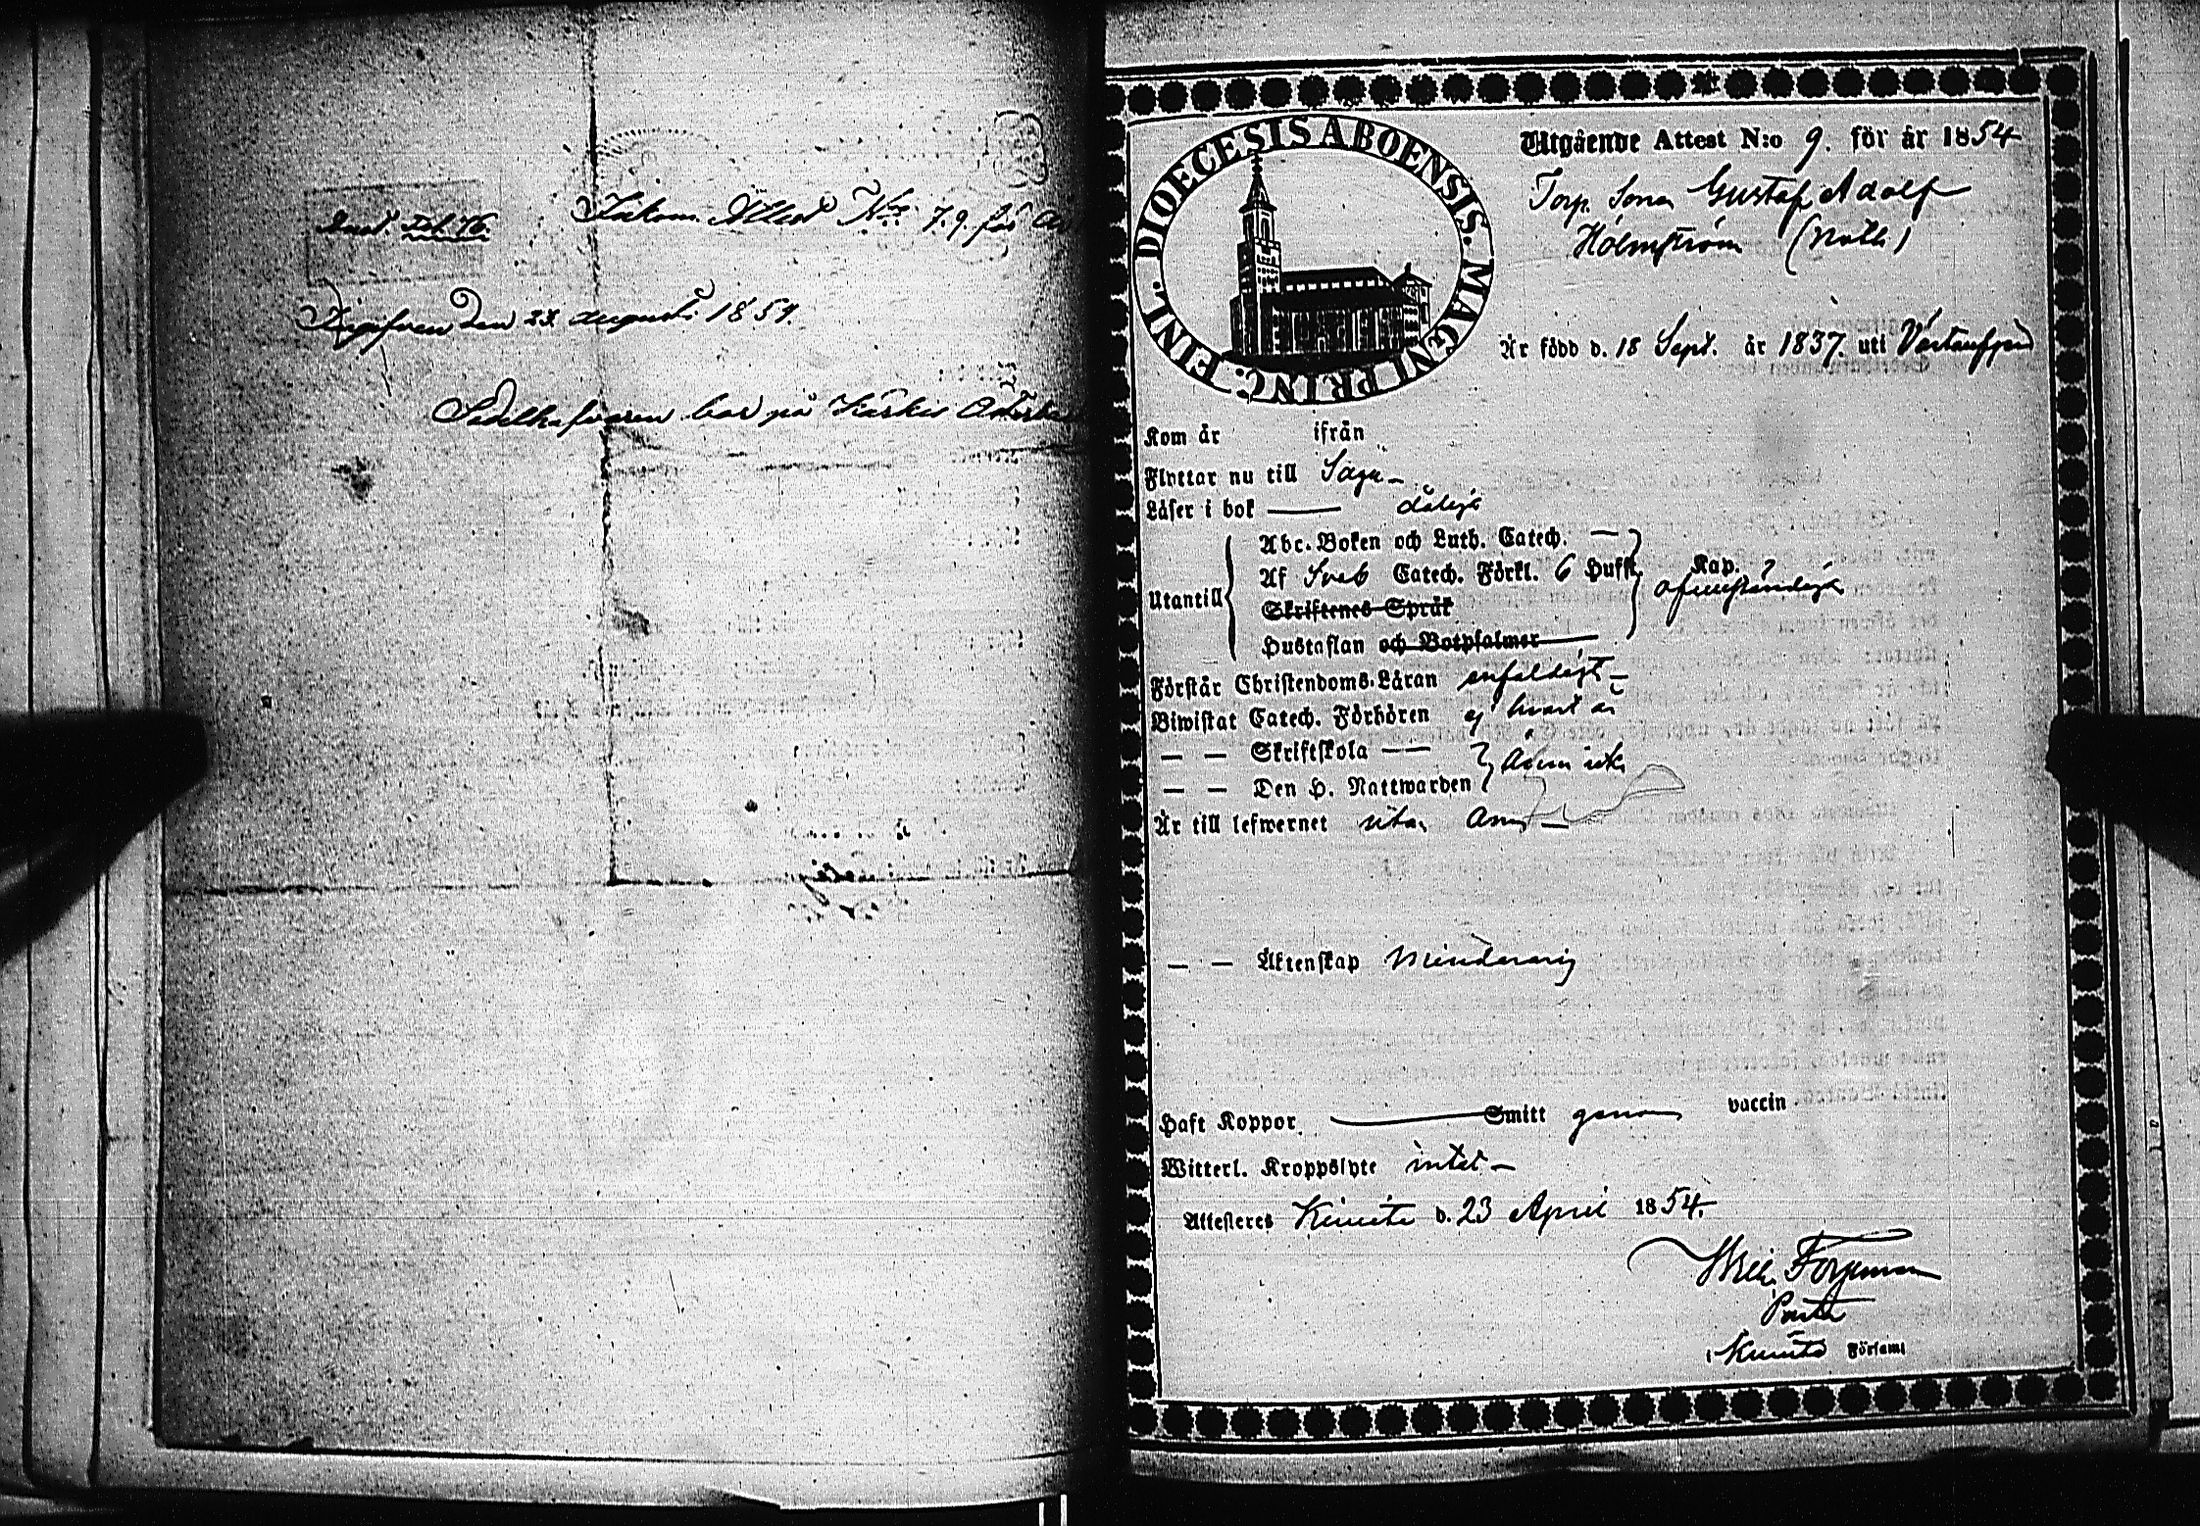 Inkom. Attest No 79. för
Ingifven den 23 Augusti 1854.
Sedelhafvaren bor på
DIOECESIS ABOENSIS. MAGNI PRINC. FINL.
Utgående Attest N:o 9. för år 1854
Torp. Sonen Gustaf Adolf
Holmström
Är född d. 18 Sept. år 1837. uti
Kom år ifrån
Flyttar nu till Sagu
Läser i bok dåligt
Abc-Boken och Luth. Catech.
Af Sveb Catech. Förkl. 6 Hufst. Kap.
Utantill ofullständigt
Skriftenes Språk
Hustaflan och Botpsalmer
Förstår Christendoms-Läran enfaldigt
Biwistat Catech. Förhören ej hvart år
— — Skriftskola ——
— — Den H. Nattwarden
Är till lefwernet utan anm
— — Äktenskap Minderårig
Haft Koppor Smitt genom vaccin
Witterl. Kroppslyte intet
Attesteras Kimito d. 23 April 1854.
i Kimito Förſaml